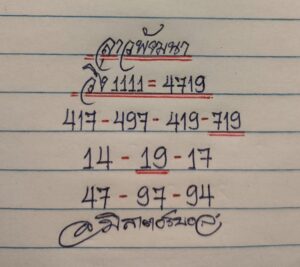 ลาวพัฒนา
วิ่ง 1111 = 4719
417 - 497 - 419 - 719
14 - 19 - 17
47 - 97 - 94